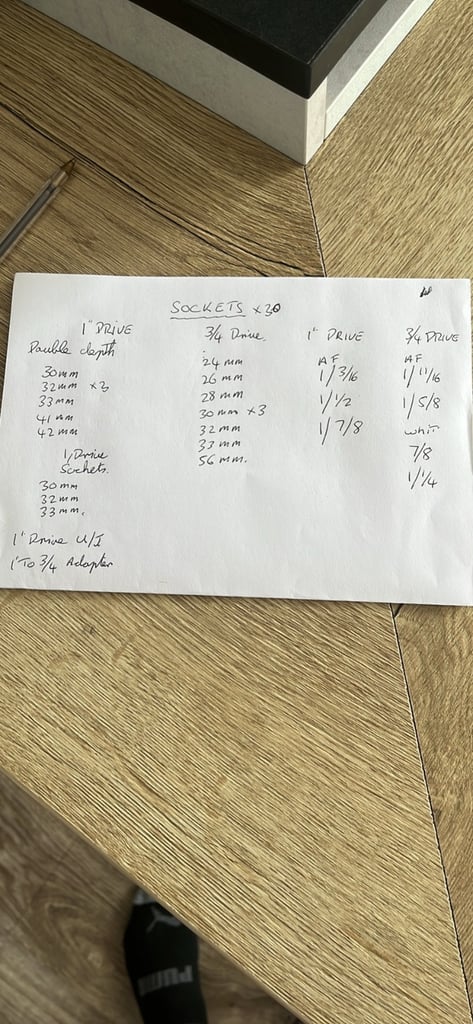 SOCKETS x30
1" DRIVE
Double depth
30mm
32mm x3
33mm
41mm
42mm
1" Drive
Sockets.
30mm
32mm
33mm.
1" Drive U/J
1" To 3/4 Adapter
3/4 Drive.
24mm
26mm
28mm
30mm x3
32mm
33mm
56mm.
1" DRIVE
AF
1/3/16
1/1/2
1/7/8
3/4 DRIVE
AF
1/11/16
1/5/8
whit
7/8
1/1/4
PUMA